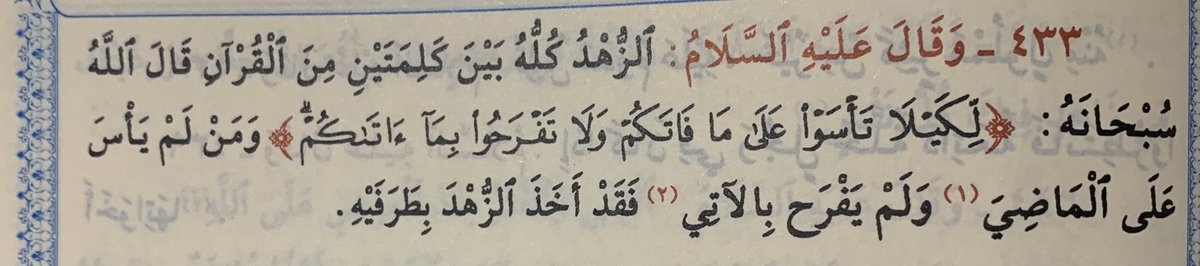 ٤٣٣ ـ وَقَالَ عَلَيْهِ ٱلسَّلَامُ: ٱلزُّهْدُ كُلُّهُ بَيْنَ كَلِمَتَيْنِ مِنَ ٱلْقُرْآنِ قَالَ ٱللَّهُ
سُبْحَانَهُ: ﴿لِّكَيْلَا تَأْسَوْا۟ عَلَىٰ مَا فَاتَكُمْ وَلَا تَفْرَحُوا۟ بِمَآ ءَاتَىٰكُمْ ۗ﴾ وَمَنْ لَمْ يَأْسَ
عَلَى ٱلْمَاضِيَ (١) وَلَمْ يَفْرَح بِالآتِي (٢) فَقَدْ أَخَذَ ٱلزُّهْدَ بِطَرَفَيْهِ.